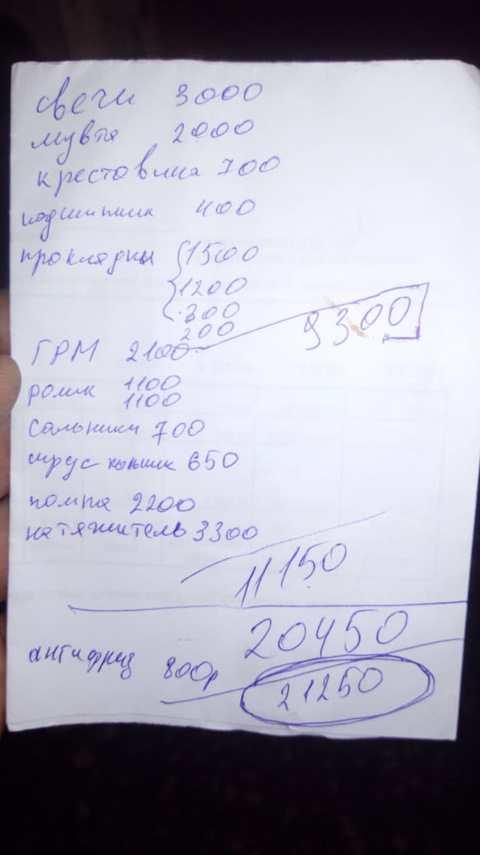 свечи 3000
муфта 2000
крестовина 700
подшипник 400
прокладки 1500
1200
300
200
9300
ГРМ 2100
ролик 1100
1100
сальники 700
шрус 650
помпа 2200
натяжитель 3300
11150
20450
антифриз 800р
21250